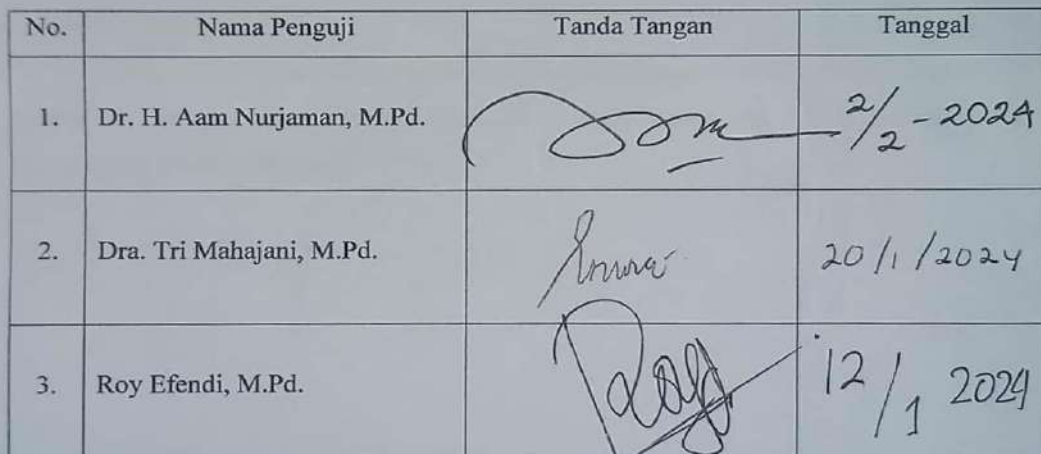 No. Nama Penguji Tanda Tangan Tanggal
1. Dr. H. Aam Nurjaman, M.Pd. 2/2 - 2024
2. Dra. Tri Mahajani, M.Pd. 20/1/2024
3. Roy Efendi, M.Pd. 12/1 2024